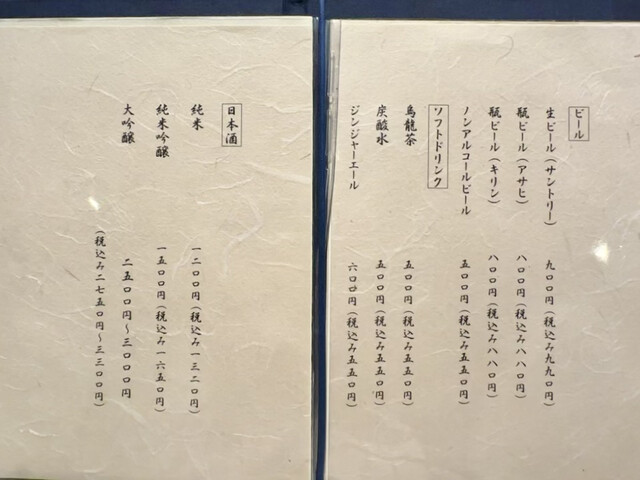 ビール
生ビール（サントリー） 九〇〇円（税込み九九〇円）
瓶ビール（アサヒ） 八〇〇円（税込み八八〇円）
瓶ビール（キリン） 八〇〇円（税込み八八〇円）
ノンアルコールビール 五〇〇円（税込み五五〇円）
ソフトドリンク
烏龍茶 五〇〇円（税込み五五〇円）
炭酸水 五〇〇円（税込み五五〇円）
ジンジャーエール 六〇〇円（税込み五五〇円）
日本酒
純米 一二〇〇円（税込み一三二〇円）
純米吟醸 一五〇〇円（税込み一六五〇円）
大吟醸 二五〇〇円〜三〇〇〇円
（税込み二七五〇円〜三三〇〇円）